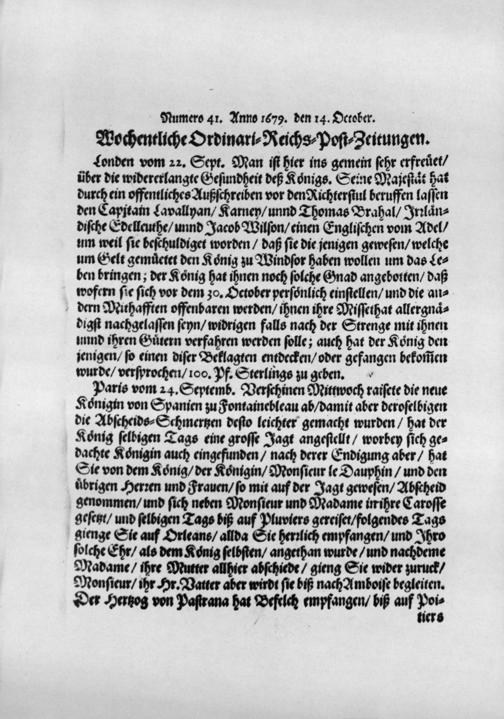 Numero 41. Anno 1679. den 14. October.
Wochentliche Ordinari-Reichs-Post-Zeitungen.
Londen vom 22. Sept. Man ist hier ins gemein sehr erfreüet/
über die widererlangte Gesundheit deß Königs. Seine Majestät hat
durch ein offentliches Außschreiben vor den Richterstul beruffen lassen
den Capitain Lavallyan/ Karney/ unnd Thomas Brahal/ Irrlän-
dische Edelleuthe/ unnd Jacob Wilson/ einen Englischen vom Adel/
um weil sie beschuldiget worden/ daß sie die jenigen gewesen/ welche
um Gelt gemüetet den König zu Windsor haben wollen um das Le-
ben bringen; der König hat ihnen noch solche Gnad angebotten/ daß
wofern sie sich vor dem 30. October persönlich einstellen/ und die an-
dern Mithafften offenbaren werden/ ihnen ihre Missethat allergnä-
digst nachgelassen seyn/ widrigen falls nach der Strenge mit ihnen
unnd ihren Gütern verfahren werden solle; auch hat der König den
jenigen/ so einen diser Beklagten entdecken/ oder gefangen bekom̃en
wurde/ versprochen/ 100. Pf. Sterlings zu geben.
Paris vom 24. Septemb. Verschinen Mittwoch raisete die neue
Königin von Spanien zu Fontainebleau ab/ damit aber deroselbigen
die Abscheids-Schmertzen desto leichter gemacht wurden/ hat der
König selbigen Tags eine grosse Jagt angestellt/ worbey sich ge-
dachte Königin auch eingefunden/ nach derer Endigung aber/ hat
Sie von dem König/ der Königin/ Monsieur le Dauphin/ und den
übrigen Herren und Frauen/ so mit auf der Jagt gewesen/ Abscheid
genommen/ und sich neben Monsieur und Madame in ihre Carosse
gesetzt/ und selbigen Tags biß auf Pluviers gereiset/ folgendes Tags
gienge Sie auf Orleans/ allda Sie herrlich empfangen/ und Ihro
solche Ehr/ als dem König selbsten/ angethan wurde/ und nachdeme
Madame/ ihre Mutter allhier abschiede/ gieng Sie wider zuruck/
Monsieur/ ihr Hr. Vatter aber wirdt sie biß nach Amboise begleiten.
Der Hertzog von Pastrana hat Befelch empfangen/ biß auf Poi-
tiers